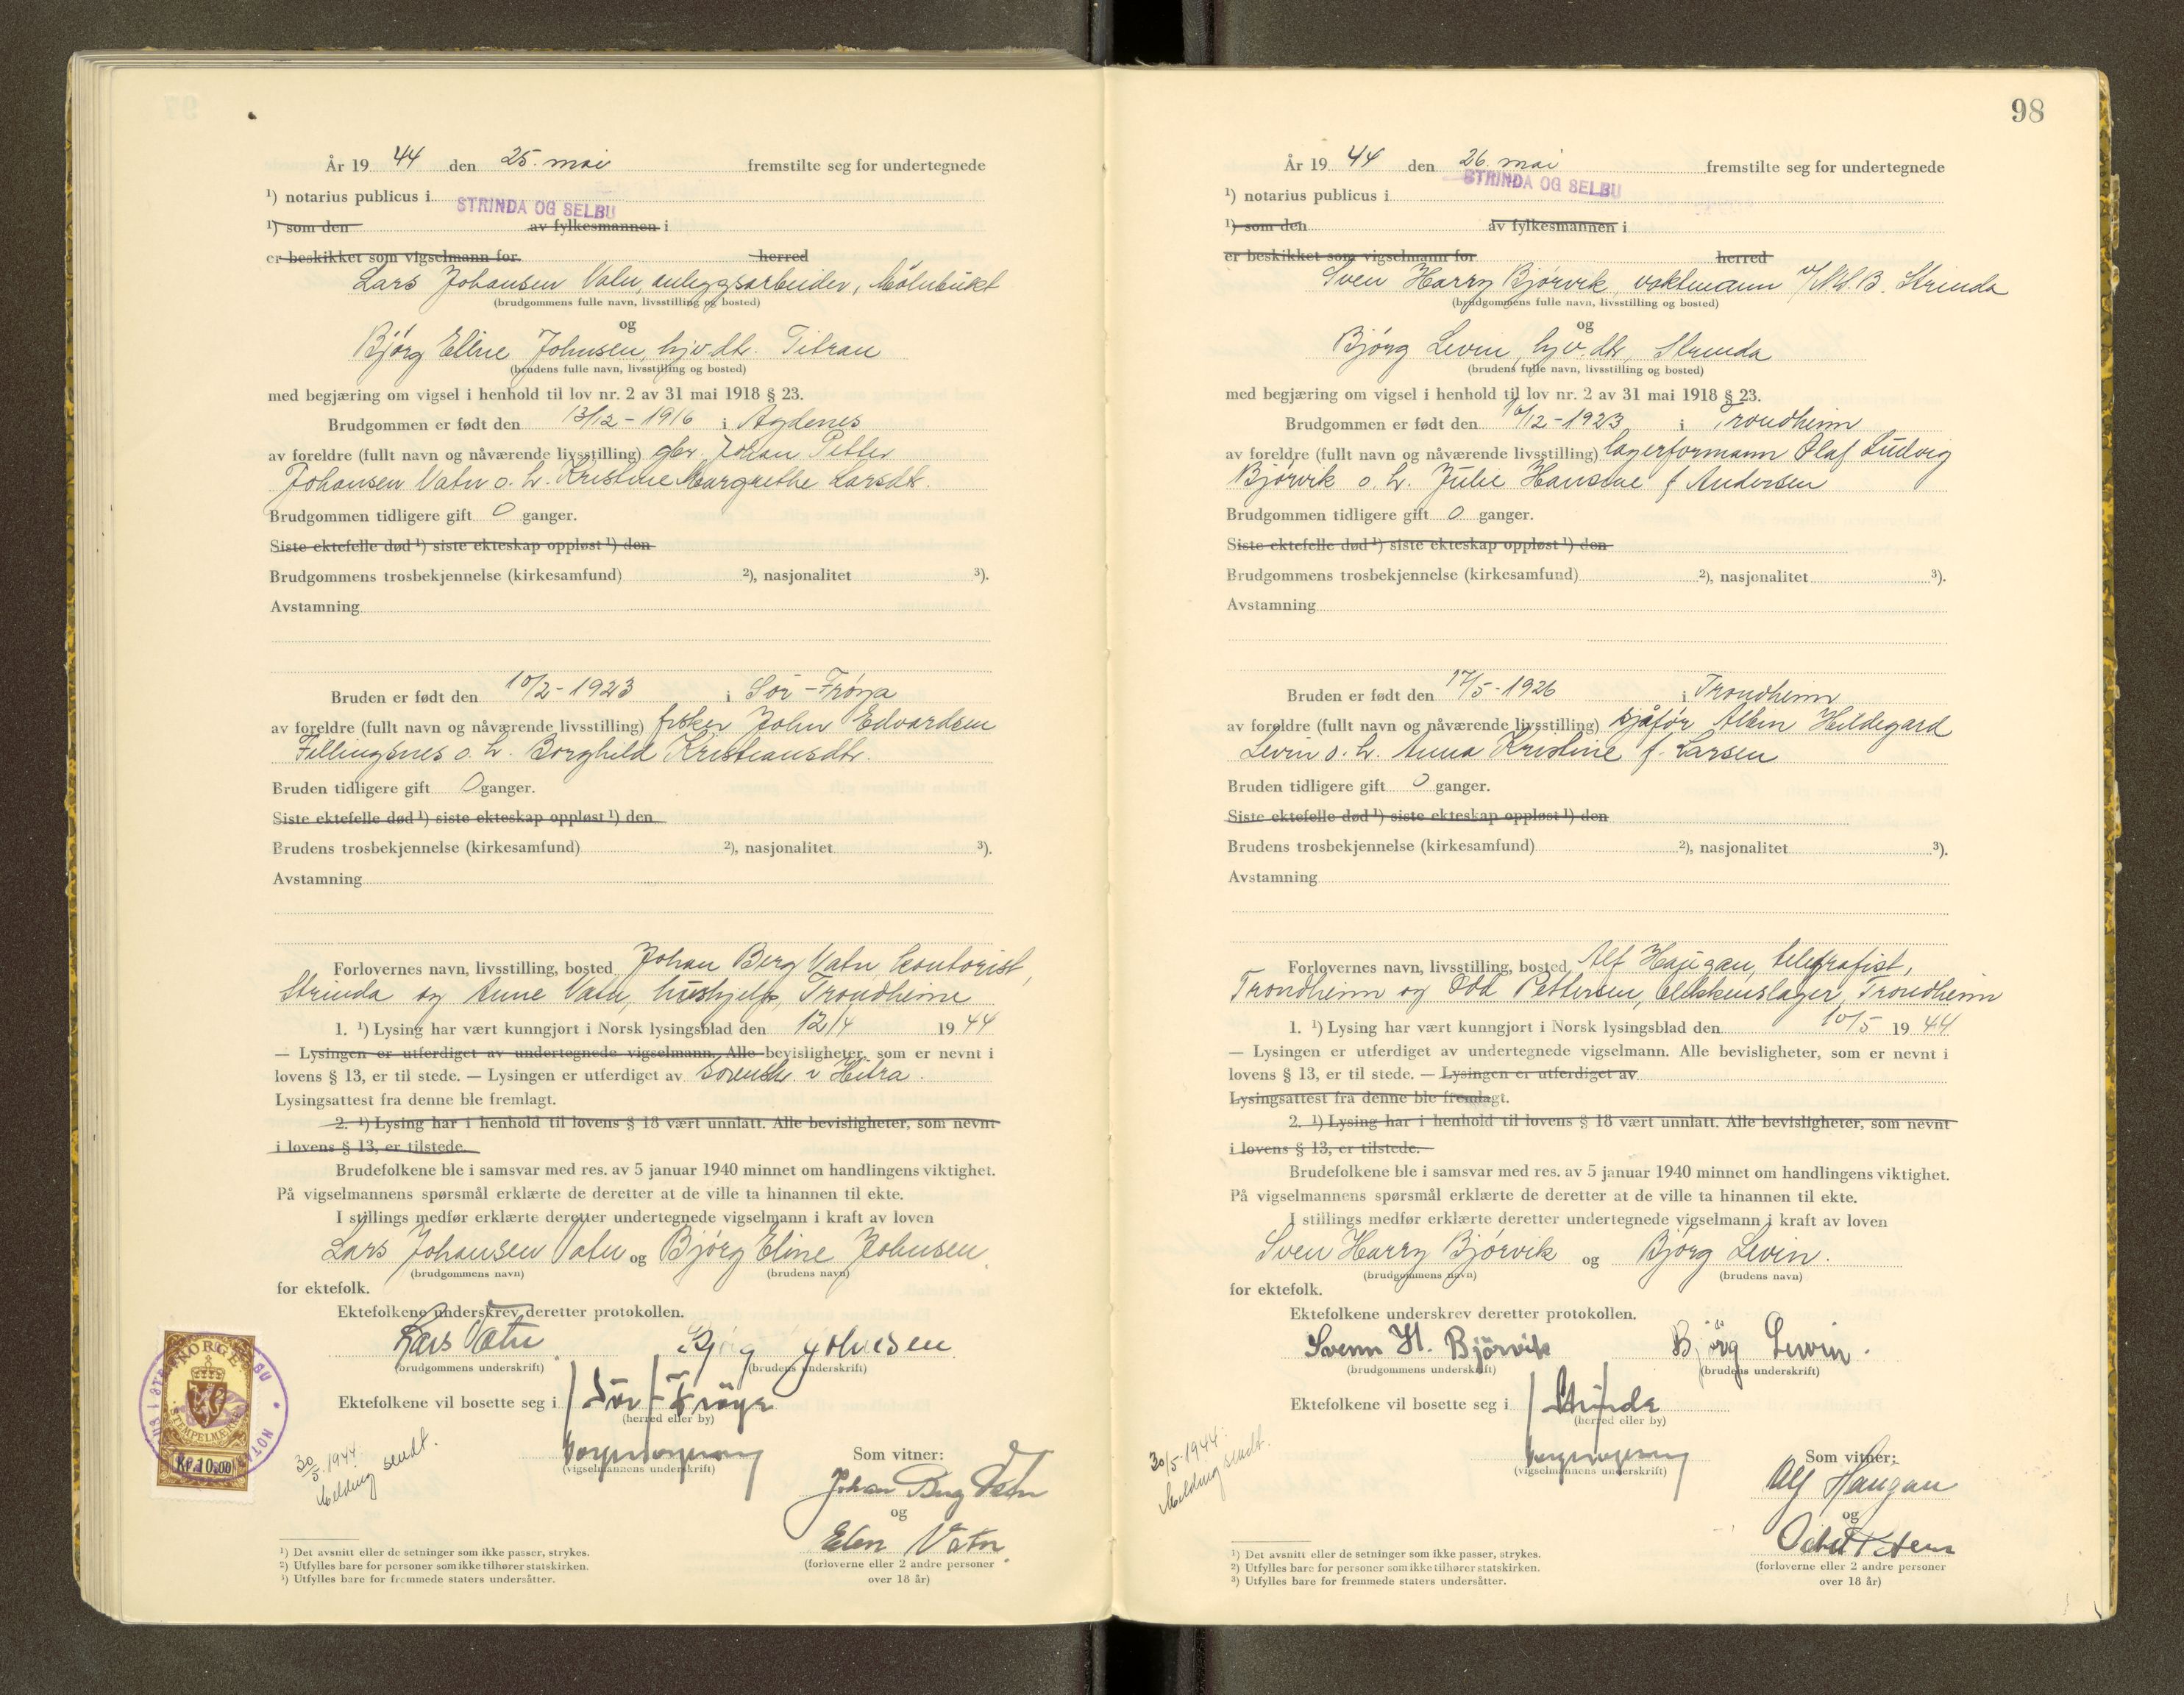 År 1944 den 25. mai fremstilte seg for undertegnede
¹) notarius publicus i STRINDA OG SELBU
¹) som den av fylkesmannen i
er beskikket som vigselmann for herred
Lars Johansen Vatn, anleggsarbeider, Mölnbukt
(brudgommens fulle navn, livsstilling og bosted)
og
Bjørg Eline Johnsen, hjv. dtr. Titran
(brudens fulle navn, livsstilling og bosted)
med begjæring om vigsel i henhold til lov nr. 2 av 31 mai 1918 § 23.
Brudgommen er født den 13/12-1916 i Agdenes
av foreldre (fullt navn og nåværende livsstilling) gbr. Johan Petter
Johansen Vatn o. h. Kristine Margrethe Larsdtr.
Brudgommen tidligere gift 0 ganger.
Siste ektefelle død ¹) siste ekteskap oppløst ¹) den
Brudgommens trosbekjennelse (kirkesamfund) ²), nasjonalitet ³).
Avstamning
Bruden er født den 10/2-1923 i Sör-Fröya
av foreldre (fullt navn og nåværende livsstilling) fisker John Edvardsen
Fillingsnes o. h. Borghild Kristiansdtr.
Bruden tidligere gift 0 ganger.
Siste ektefelle død ¹) siste ekteskap oppløst ¹) den
Brudens trosbekjennelse (kirkesamfund) ²), nasjonalitet ³).
Avstamning
Forlovernes navn, livsstilling, bosted Johan Berg Vatn, kontorist,
Strinda og Anne Vatn, hushjelp, Trondheim
1. ¹) Lysing har vært kunngjort i Norsk lysingsblad den 12/4 1944
— Lysingen er utferdiget av undertegnede vigselmann. Alle bevisligheter, som er nevnt i
lovens § 13, er til stede. — Lysingen er utferdiget av sorenskr. i Hitra.
Lysingsattest fra denne ble fremlagt.
2. ¹) Lysing har i henhold til lovens § 18 vært unnlatt. Alle bevisligheter, som nevnt
i lovens § 13, er tilstede.
Brudefolkene ble i samsvar med res. av 5 januar 1940 minnet om handlingens viktighet.
På vigselmannens spørsmål erklærte de deretter at de ville ta hinannen til ekte.
I stillings medfør erklærte deretter undertegnede vigselmann i kraft av loven
Lars Johansen Vatn og Bjørg Eline Johnsen
(brudgommens navn) (brudens navn)
for ektefolk.
Ektefolkene underskrev deretter protokollen.
Lars Vatn Bjørg Johnsen
(brudgommens underskrift) (brudens underskrift)
Ektefolkene vil bosette seg i Sör-Fröya
(herred eller by)
NORGE
STEMPELMERKE
Kr. 10.00
30/5.1944.
Melding sendt.
(vigselmannens underskrift)
Som vitner:
Johan Berg Vatn
og
Elen Vatn
(forloverne eller 2 andre personer
over 18 år)
¹) Det avsnitt eller de setninger som ikke passer, strykes.
²) Utfylles bare for personer som ikke tilhører statskirken.
³) Utfylles bare for fremmede staters undersåtter.
98
År 1944 den 26. mai fremstilte seg for undertegnede
¹) notarius publicus i STRINDA OG SELBU
¹) som den av fylkesmannen i
er beskikket som vigselmann for herred
Sven Harry Bjørvik, vaktmann v/N.S.B. Strinda
(brudgommens fulle navn, livsstilling og bosted)
og
Bjørg Levin, hjv. dtr, Strinda
(brudens fulle navn, livsstilling og bosted)
med begjæring om vigsel i henhold til lov nr. 2 av 31 mai 1918 § 23.
Brudgommen er født den 16/12-1923 i Trondheim
av foreldre (fullt navn og nåværende livsstilling) lagerformann Olaf Ludvig
Bjørvik o. h. Julie Hansine f Andersen
Brudgommen tidligere gift 0 ganger.
Siste ektefelle død ¹) siste ekteskap oppløst ¹) den
Brudgommens trosbekjennelse (kirkesamfund) ²), nasjonalitet ³).
Avstamning
Bruden er født den 17/5-1926 i Trondheim
av foreldre (fullt navn og nåværende livsstilling) sjåför Albin Hildegard
Levin o. h. Anna Kristine f. Larsen
Bruden tidligere gift 0 ganger.
Siste ektefelle død ¹) siste ekteskap oppløst ¹) den
Brudens trosbekjennelse (kirkesamfund) ²), nasjonalitet ³).
Avstamning
Forlovernes navn, livsstilling, bosted Alf Haugan, telegrafist,
Trondheim og Odd Pettersen, blikkenslager, Trondheim
1. ¹) Lysing har vært kunngjort i Norsk lysingsblad den 10/5 1944
— Lysingen er utferdiget av undertegnede vigselmann. Alle bevisligheter, som er nevnt i
lovens § 13, er til stede. — Lysingen er utferdiget av
Lysingsattest fra denne ble fremlagt.
2. ¹) Lysing har i henhold til lovens § 18 vært unnlatt. Alle bevisligheter, som nevnt
i lovens § 13, er tilstede.
Brudefolkene ble i samsvar med res. av 5 januar 1940 minnet om handlingens viktighet.
På vigselmannens spørsmål erklærte de deretter at de ville ta hinannen til ekte.
I stillings medfør erklærte deretter undertegnede vigselmann i kraft av loven
Sven Harry Bjørvik og Bjørg Levin.
(brudgommens navn) (brudens navn)
for ektefolk.
Ektefolkene underskrev deretter protokollen.
Svenn H. Björvik Björg Levin.
(brudgommens underskrift) (brudens underskrift)
Ektefolkene vil bosette seg i Strinda
(herred eller by)
30/5-1944.
Melding sendt.
(vigselmannens underskrift)
Som vitner:
Alf Haugan
og
(forloverne eller 2 andre personer
over 18 år)
¹) Det avsnitt eller de setninger som ikke passer, strykes.
²) Utfylles bare for personer som ikke tilhører statskirken.
³) Utfylles bare for fremmede staters undersåtter.